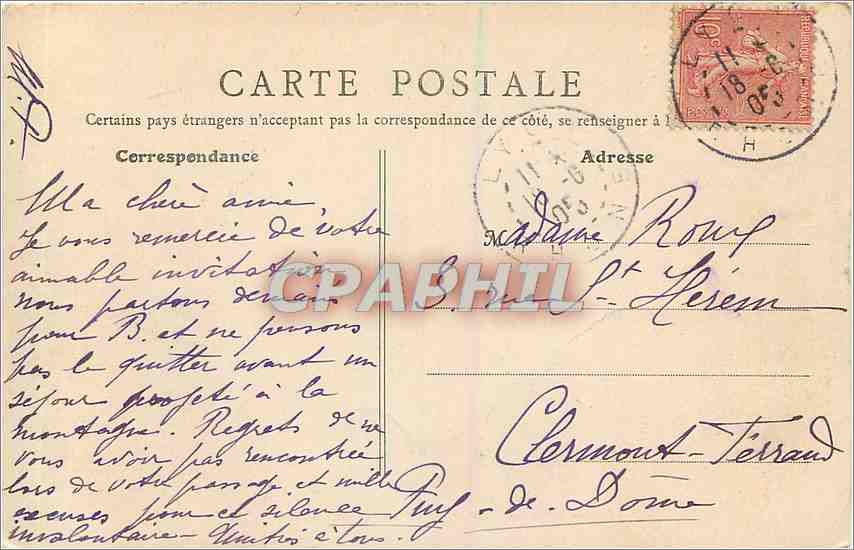 CARTE POSTALE
Certains pays étrangers n'acceptant pas la correspondance de ce côté, se renseigner à l
Correspondance
Ma chère amie,
Je vous remercie de votre
aimable invitation
nous partons demain
pour B. et ne pensons
pas le quitter avant un
séjour projeté à la
montagne. Regrets de ne
vous avoir pas rencontrée
lors de votre passage et mille
excuses pour ce silence
involontaire - Amitiés à tous.
Adresse
Madame Roux
3, rue St Hérem
Clermont-Ferrand
Puy-de-Dôme
CPAPHIL
10c
REPUBLIQUE FRANÇAISE
11 18 -6 05
LYON
11 18 -6 05